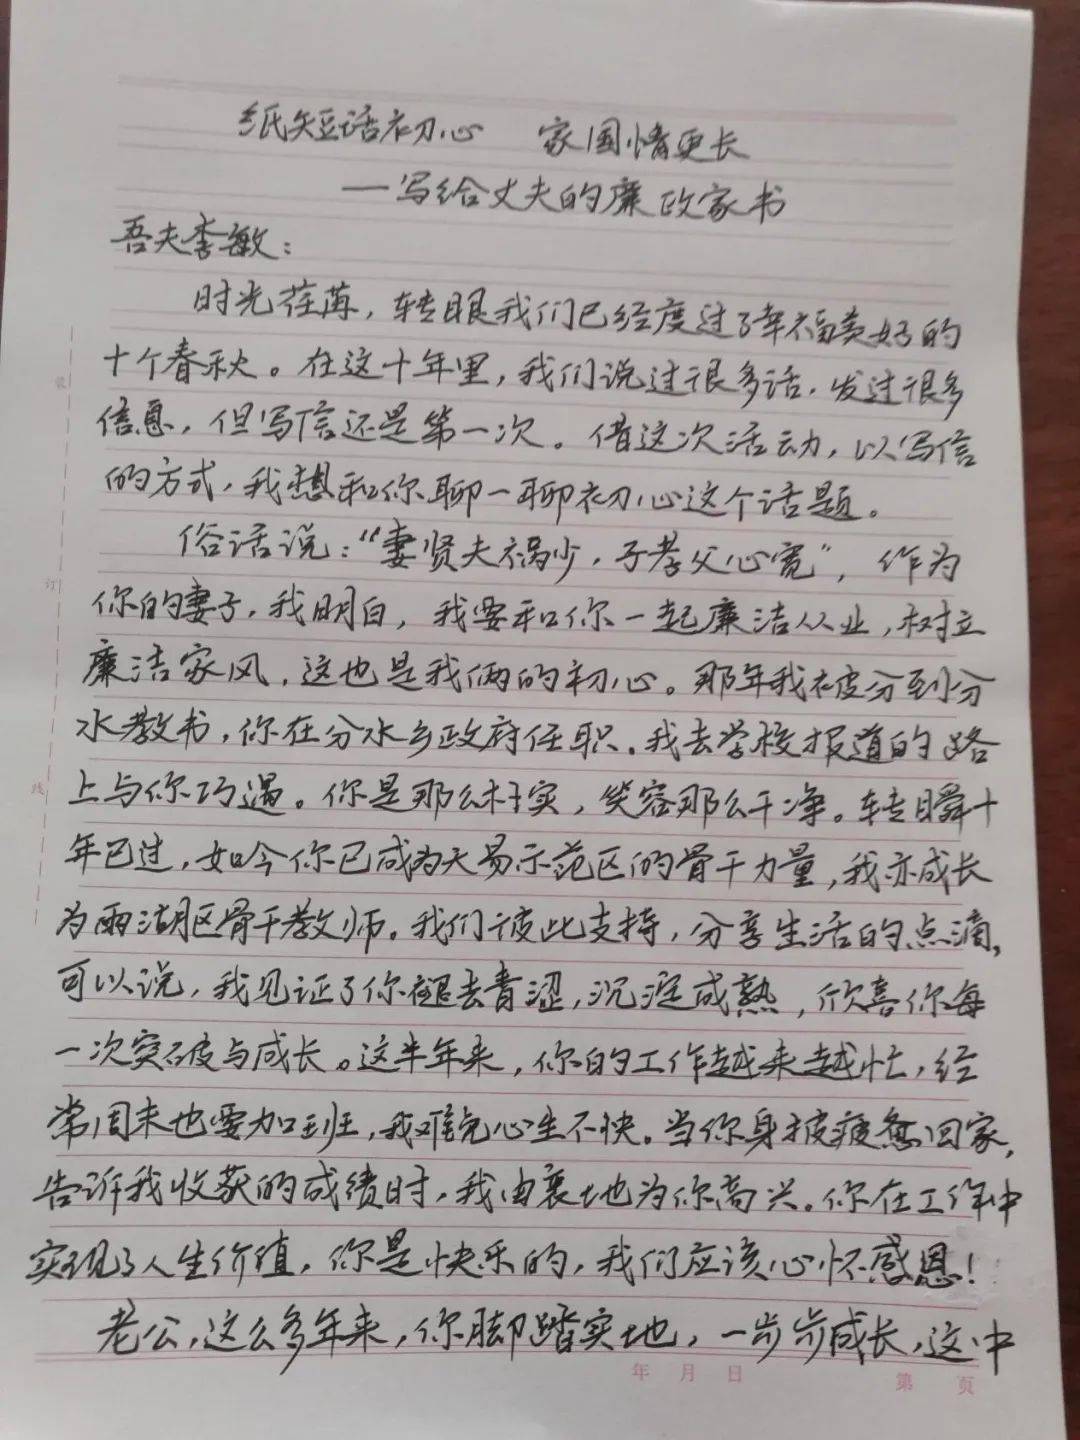 纸短话初心 家国情更长
——写给丈夫的廉政家书
吾夫李敏：
时光荏苒，转眼我们已经度过了幸福美好的
十个春秋。在这十年里，我们说过很多话，发过很多
信息，但写信还是第一次。借这次活动，以写信
的方式，我想和你聊一聊初心这个话题。
俗话说：“妻贤夫祸少，子孝父心宽”，作为
你的妻子，我明白，我要和你一起廉洁从业，树立
廉洁家风，这也是我俩的初心。那年我被分到分
水教书，你在分水乡政府任职。我去学校报道的路
上与你巧遇。你是那么朴实，笑容那么干净。转瞬十
年已过，如今你已成为天易示范区的骨干力量，我亦成长
为雨湖区骨干教师。我们彼此支持，分享生活的点滴，
可以说，我见证了你褪去青涩，沉淀成熟，欣喜你每
一次突破与成长。这半年来，你的工作越来越忙，经
常周末也要加班，我难免心生不快。当你身披疲惫回家，
告诉我收获的成绩时，我由衷地为你高兴。你在工作中
实现了人生价值，你是快乐的，我们应该心怀感恩！
老公，这么多年来，你脚踏实地，一步步成长，这中
年 月 日
第 页
装
订
线